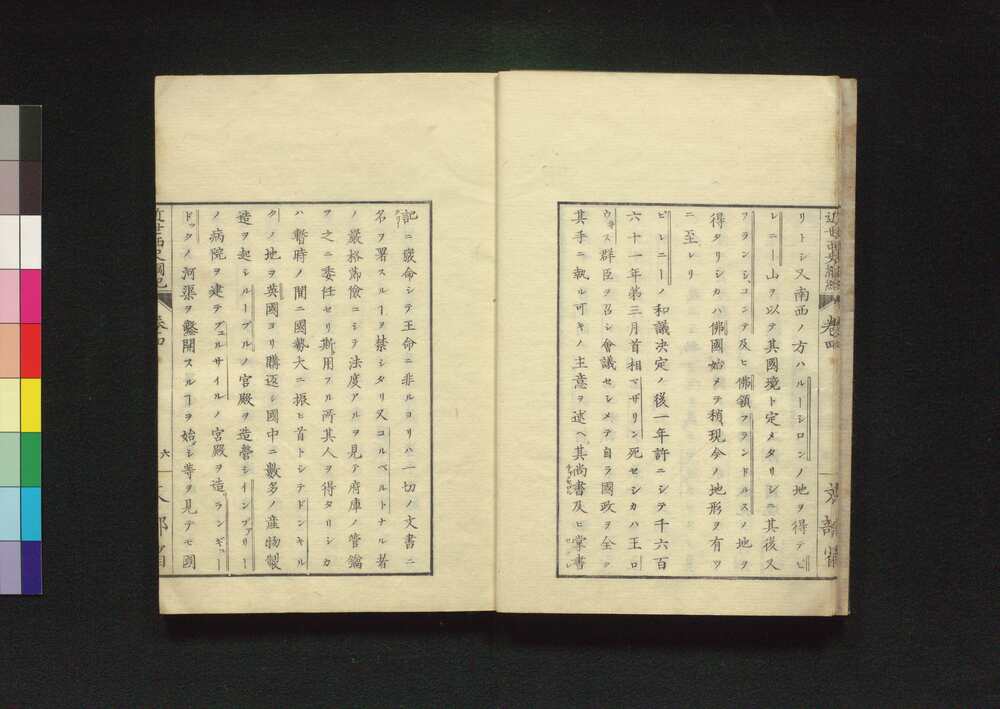 近世西史綱紀 卷四 文部省
リトシ又南西ノ方ハルーシロンノ地ヲ得テピ
レニー山ヲ以テ其國境ト定メタリシニ其後又
フランシ、コンテ及ヒ佛領フランドルスノ地ヲ
得タリシカハ佛國始メテ稍現今ノ地形ヲ有ツ
ニ至レリ
ピレニーノ和議決定ノ後一年許ニシテ千六百
六十一年第三月首相マザリン死セシカハ王ロ
ウス群臣ヲ召シ會議セシメテ自ラ國政ヲ全ク
其手ニ執ル可キノ主意ヲ述ヘ其尚書及ヒ掌書
記ニ嚴命シテ王命ニ非ルヨリハ一切ノ文書ニ
名ヲ署スルヿヲ禁シタリ又コルベルトナル者
ノ嚴格節儉ニシテ法度アルヲ見テ府庫ノ管鑰
ヲ之ニ委任セリ斯用フル所其人ヲ得タリシカ
ハ暫時ノ間ニ國勢大ニ振ヒ首トシテドンキル
クノ地ヲ英國ヨリ購返シ國中ニ數多ノ産物製
造ヲ起シルーブルノ宮殿ヲ造營シインヴァリー
ノ病院ヲ建テヴェルサイルノ宮殿ヲ造ランギュー
ドックノ河渠ヲ鑿開スルヿヲ始シ等ヲ見テモ國
近世西史綱紀 卷四 六 文部省